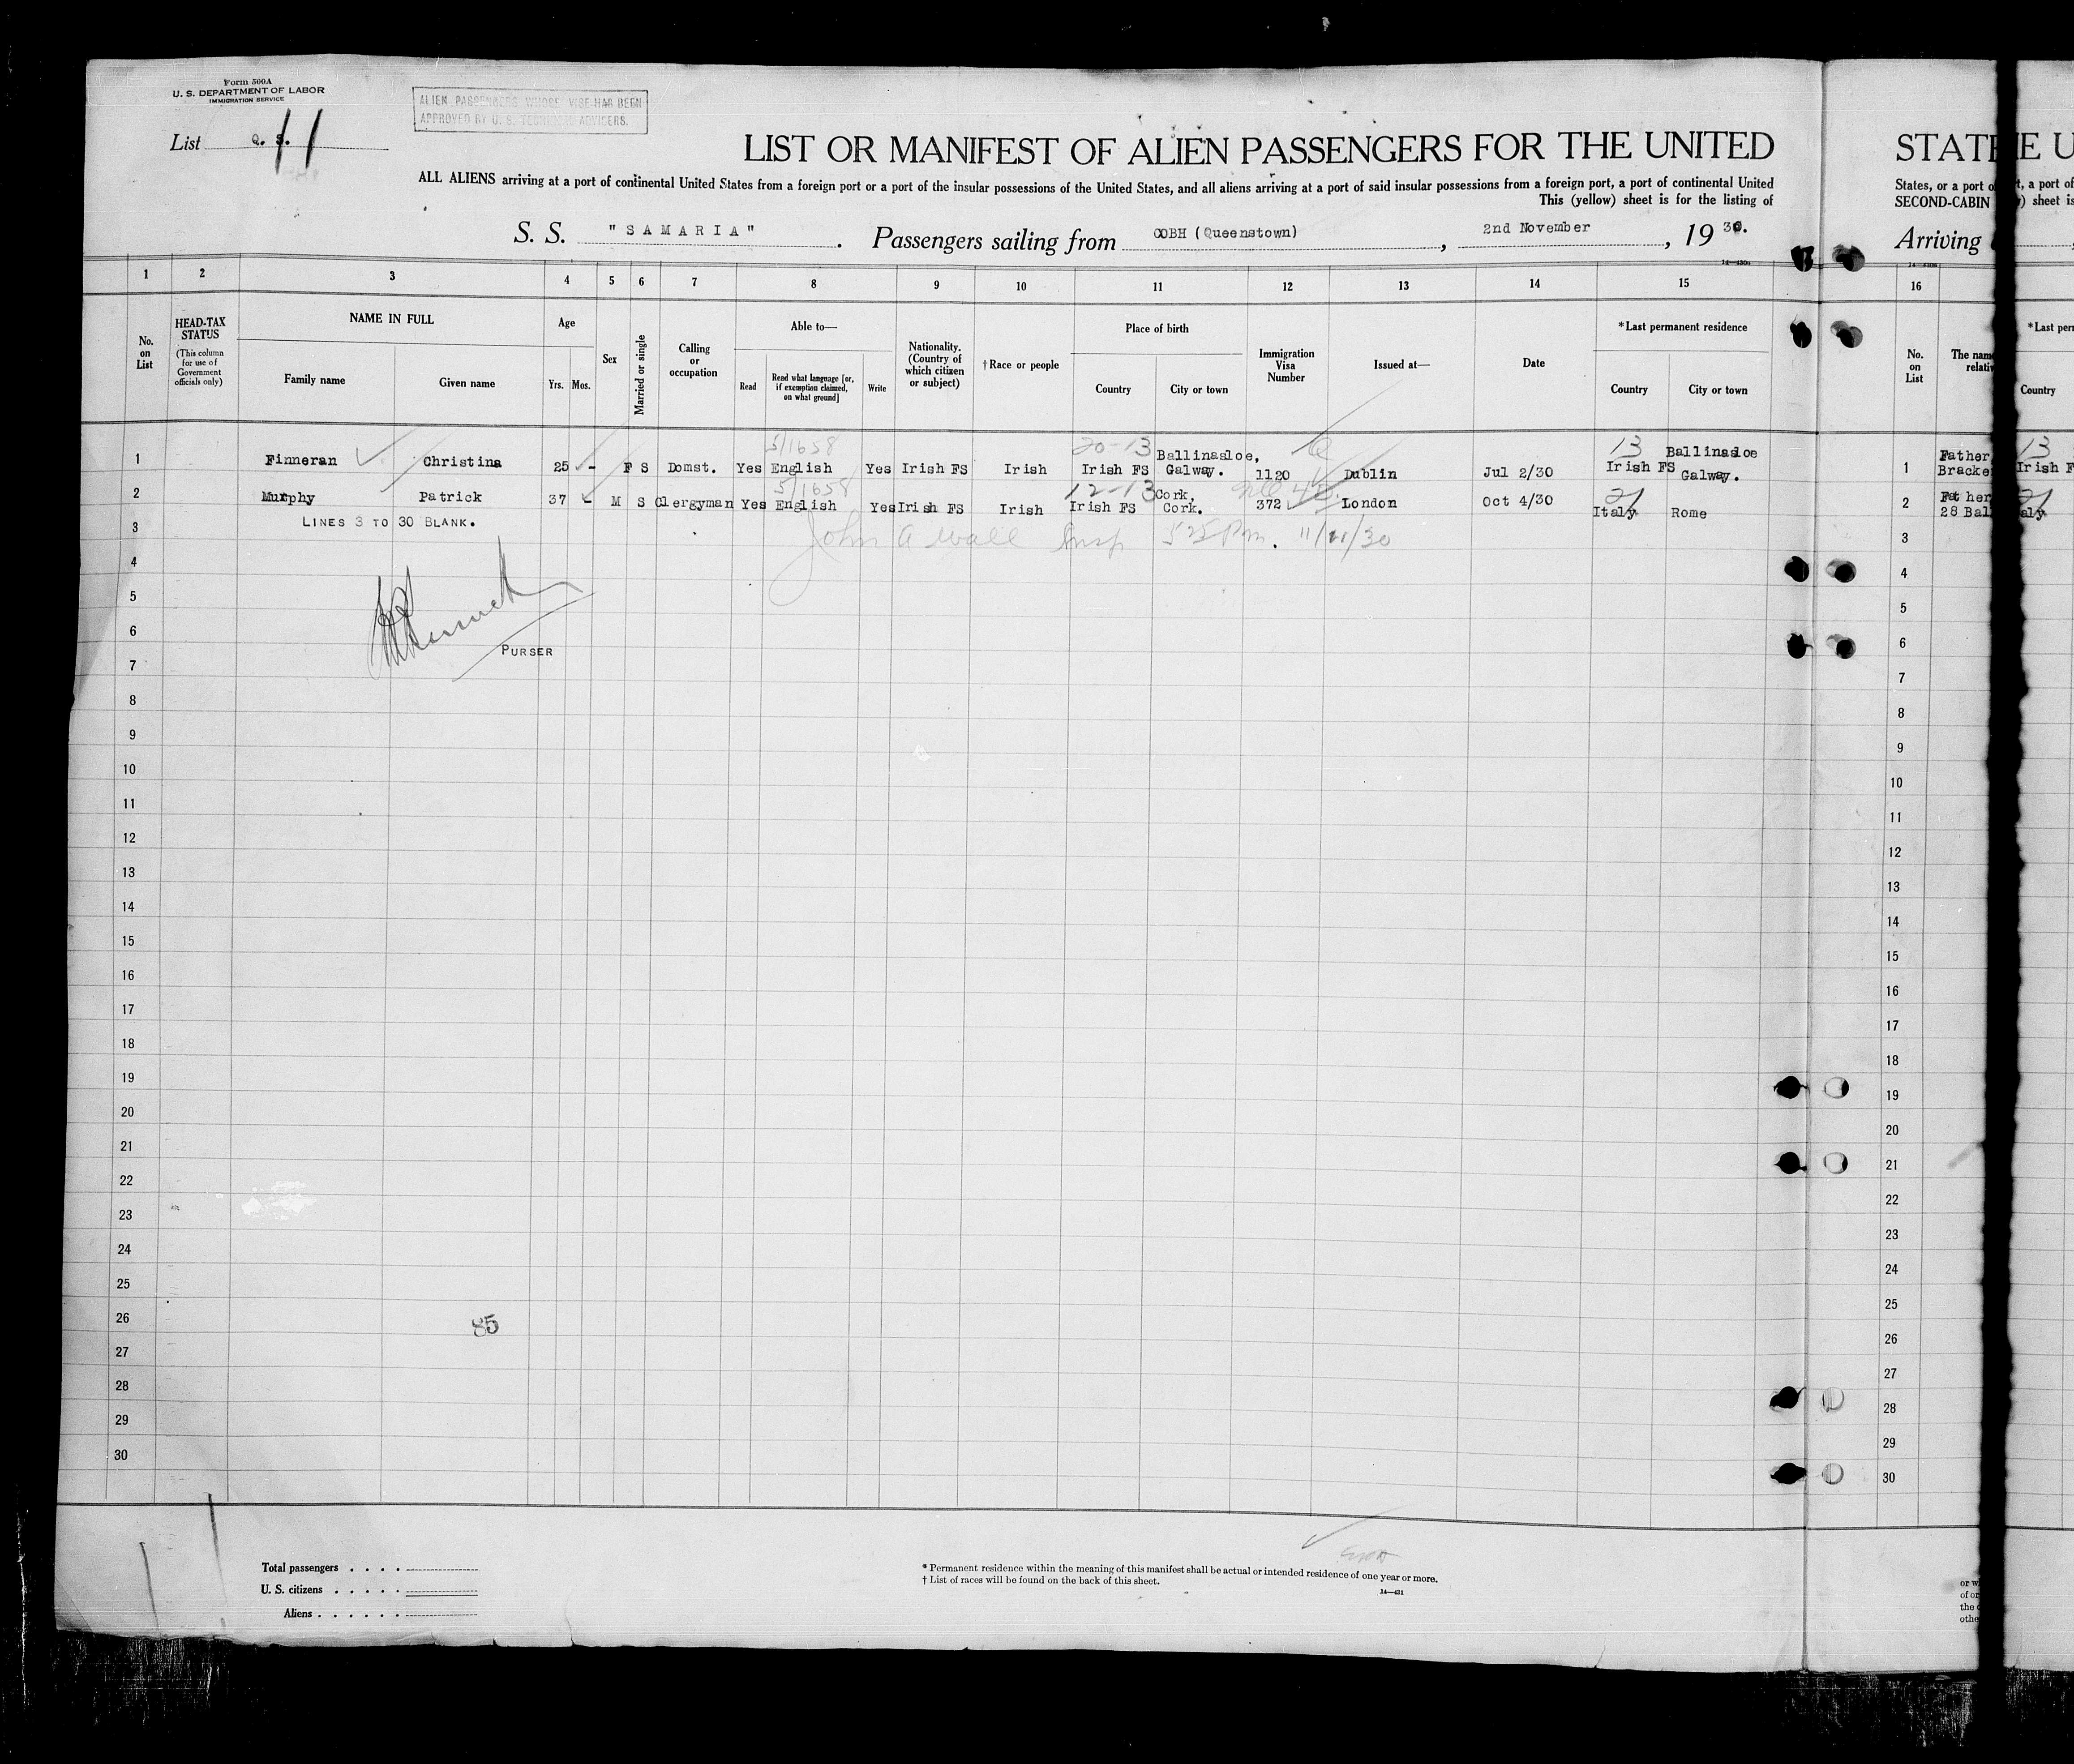 Form 500A
U. S. DEPARTMENT OF LABOR
IMMIGRATION SERVICE
List Q. S. 11
ALIEN PASSENGERS WHOSE VISE HAS BEEN
APPROVED BY U. S. TECHNICAL ADVISERS.
LIST OR MANIFEST OF ALIEN PASSENGERS FOR THE UNITED
ALL ALIENS arriving at a port of continental United States from a foreign port or a port of the insular possessions of the United States, and all aliens arriving at a port of said insular possessions from a foreign port, a port of continental United
This (yellow) sheet is for the listing of
S. S. "SAMARIA". Passengers sailing from COBH (Queenstown), 2nd November, 19 30.
1 2 3 4 5 6 7 8 9 10 11 12 13 14 15
No. on List
HEAD-TAX STATUS
(This column for use of Government officials only)
NAME IN FULL
Family name
Given name
Age
Yrs. Mos.
Sex
Married or single
Calling or occupation
Able to—
Read
Read what language [or, if exemption claimed, on what ground]
Write
Nationality. (Country of which citizen or subject)
†Race or people
Place of birth
Country
City or town
Immigration Visa Number
Issued at—
Date
*Last permanent residence
Country
City or town
5/1658 20-13 13
1 Finneran Christina 25 - F S Domst. Yes English Yes Irish FS Irish Irish FS Ballinasloe, Galway. 1120 Dublin Jul 2/30 Irish FS Ballinasloe Galway.
5/1658 12-13 21
2 Murphy Patrick 37 - M S Clergyman Yes English Yes Irish FS Irish Irish FS Cork, Cork. 372 London Oct 4/30 Italy Rome
3 LINES 3 TO 30 BLANK.
John A Wall Insp 5 25 Pm. 11/11/30
4
5
6
PURSER
7
8
9
10
11
12
13
14
15
16
17
18
19
20
21
22
23
24
25
26
85
27
28
29
30
Total passengers
U. S. citizens
Aliens
* Permanent residence within the meaning of this manifest shall be actual or intended residence of one year or more.
† List of races will be found on the back of this sheet.
14—431
STATE
States, or a port o
SECOND-CABIN
Arriving
16
No. on List
The nam
relativ
1 Father,
Bracke
2 Father
28 Bal
3
4
5
6
7
8
9
10
11
12
13
14
15
16
17
18
19
20
21
22
23
24
25
26
27
28
29
30
or w
of or
the
othe
E U
t, a port of
) sheet is
*Last per
Country
13
Irish F
21
aly